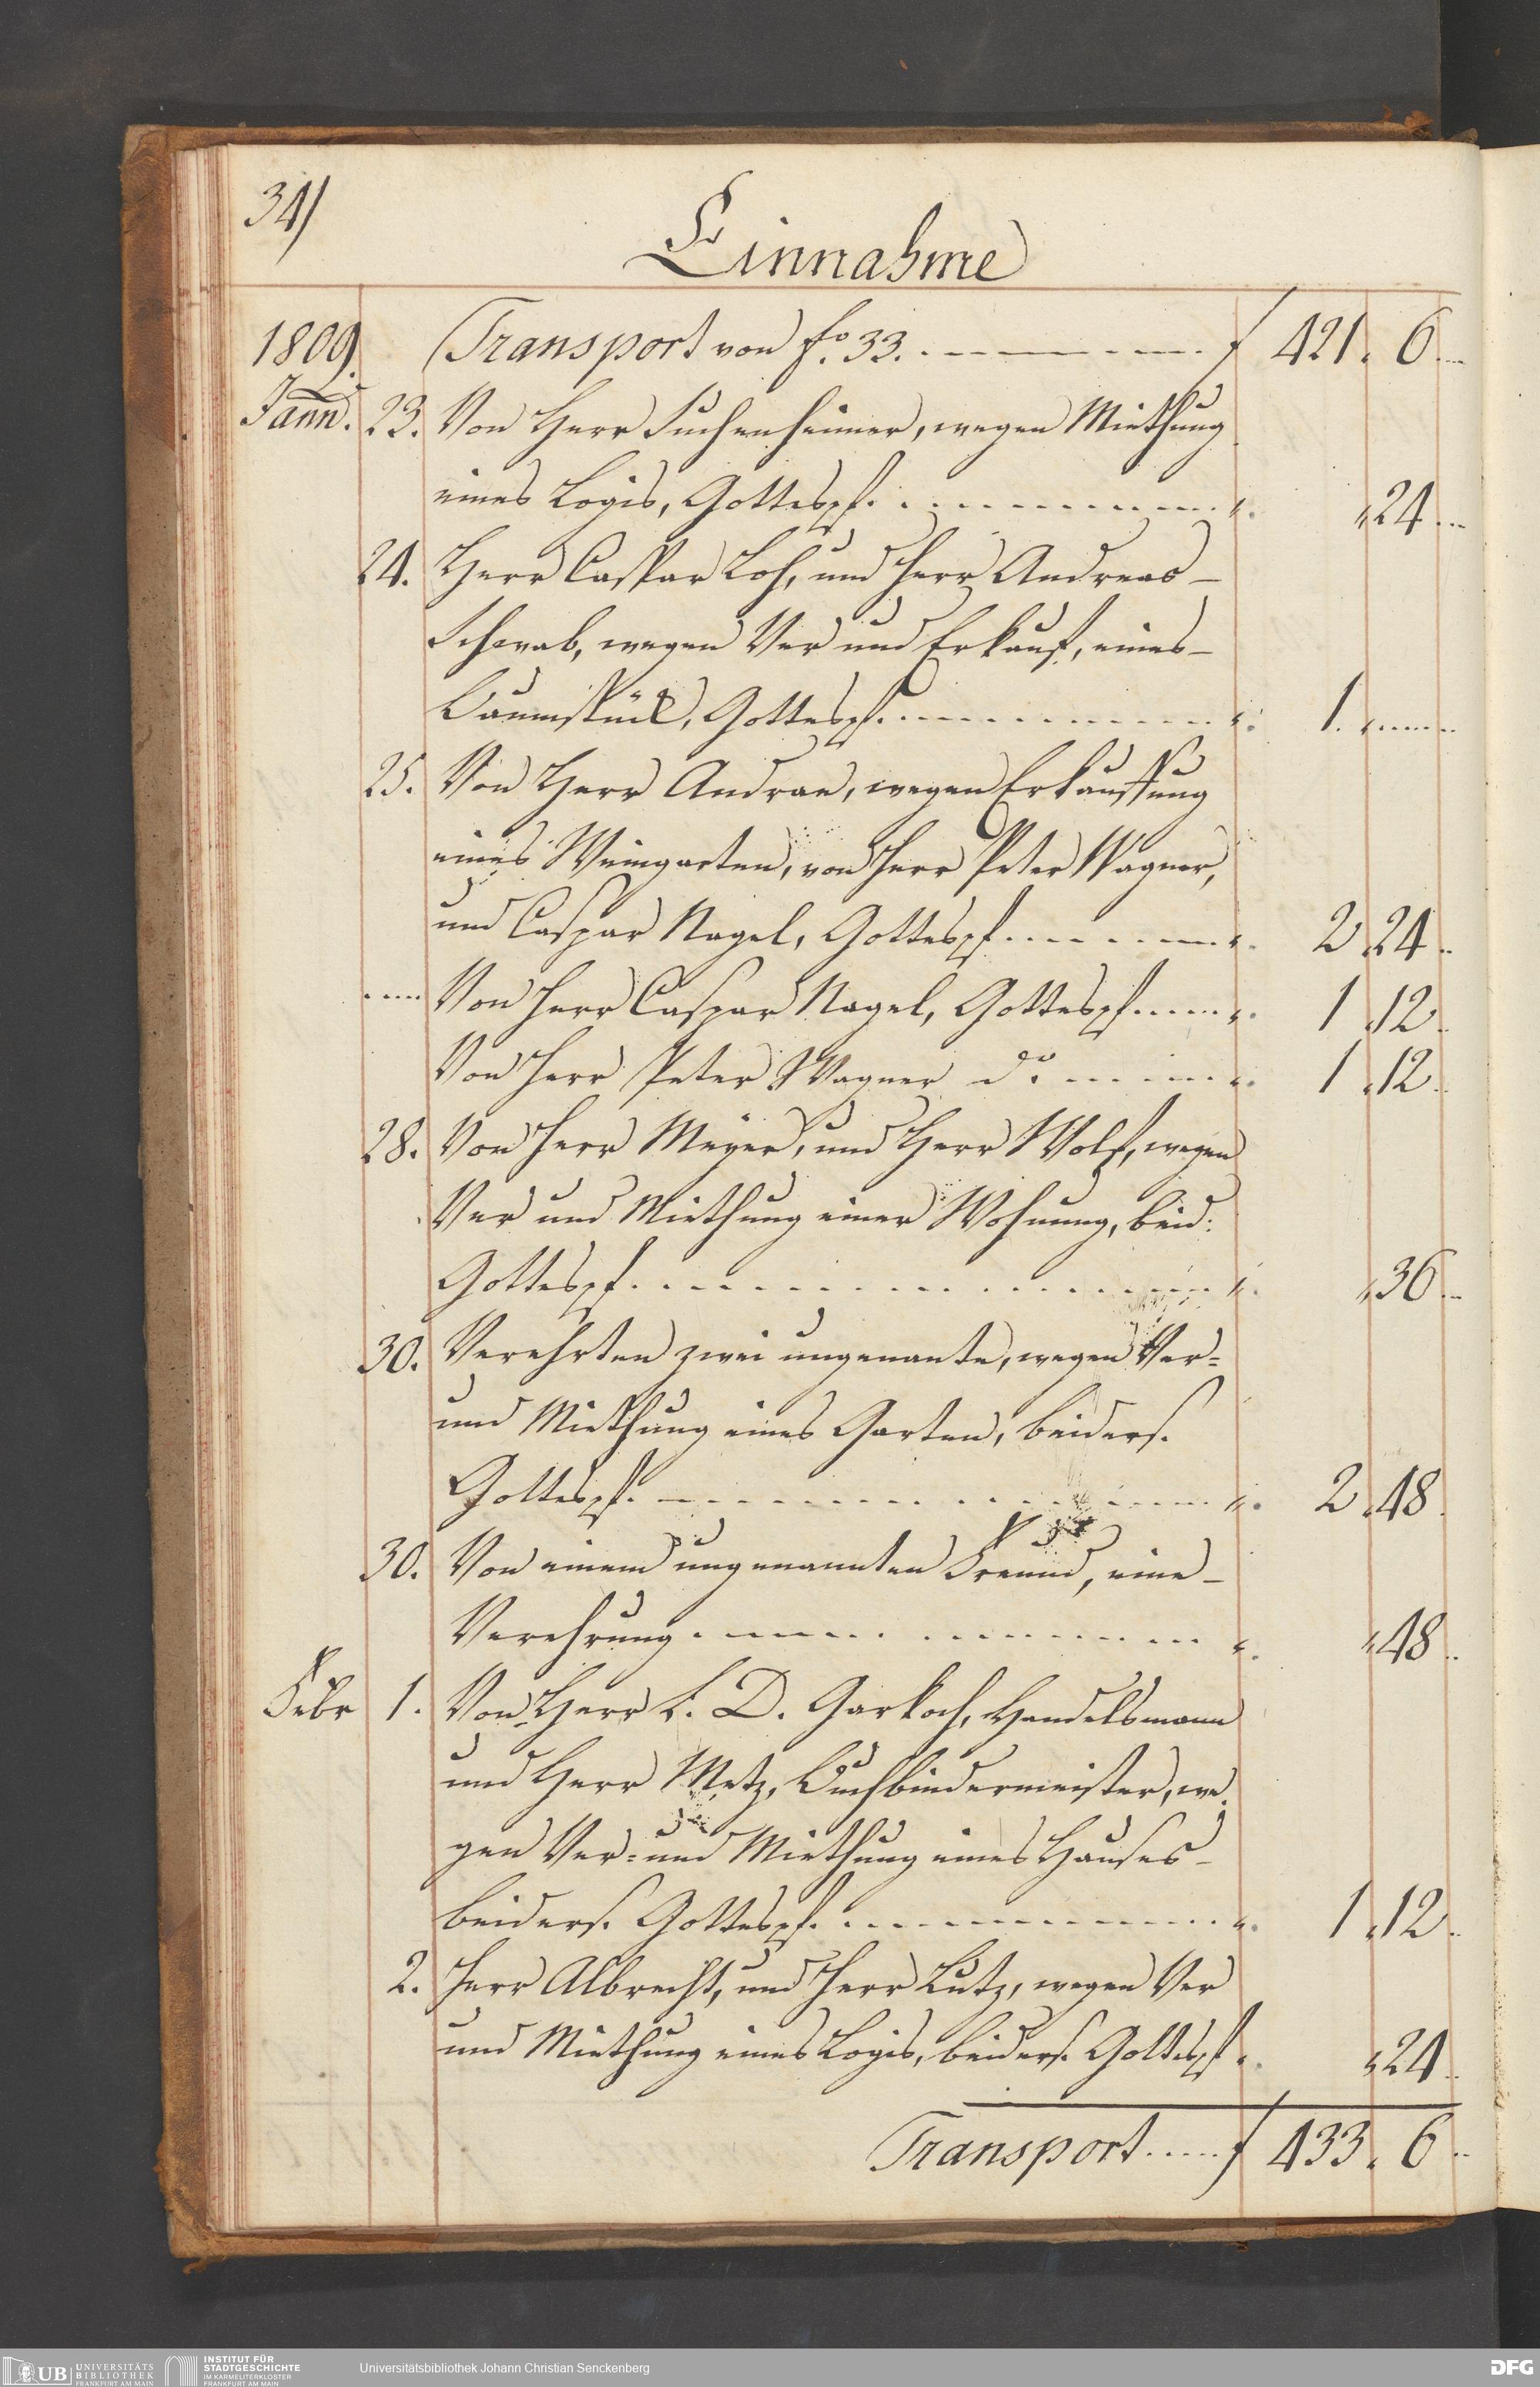 34)
Einnahme
1809. Transport von fo. 33. f 421. 6.
Jann. 23. Von Herr Suchenheimer, wegen Miethung
eines Logis, Gottespf. " 24
24. Herr Caspar Loh, und Herr Andreas
Schwab, wegen Ver und Erkauf, eines
Baumstück, Gottespf. 1.
25. Von Herr Andrae, wegen Erkauffung
eines Weingarten, von Herr Peter Wagner,
und Caspar Nagel, Gottespf. 2 24
Von Herr Caspar Nagel, Gottespf. 1 12
Von Herr Peter Wagner do 1 12
28. Von Herr Meyer, und Herr Wolf, wegen
Ver und Miethung einer Wohnung, beid:
Gottespf. " 36
30. Verehrten zwei ungenante, wegen Ver=
und Miethung eines Garten, beiders.
Gottespf. 2 48
30. Von einem ungenannten Freund, eine
Verehrung " 48
Febr 1. Von Herr L. D. Garkoch, Handelsmann
und Herr Metz, Buchbindermeister, we
gen Ver= und Miethung eines Hauses
beiders. Gottespf. 1 12
2. Herr Albrecht, und Herr Lutz, wegen Ver
und Miethung eines Logis, beiders. Gottespf " 24
Transport f 433. 6
UB UNIVERSITÄTS
BIBLIOTHEK
FRANKFURT AM MAIN
INSTITUT FÜR
STADTGESCHICHTE
IM KARMELITERKLOSTER
FRANKFURT AM MAIN
Universitätsbibliothek Johann Christian Senckenberg
DFG